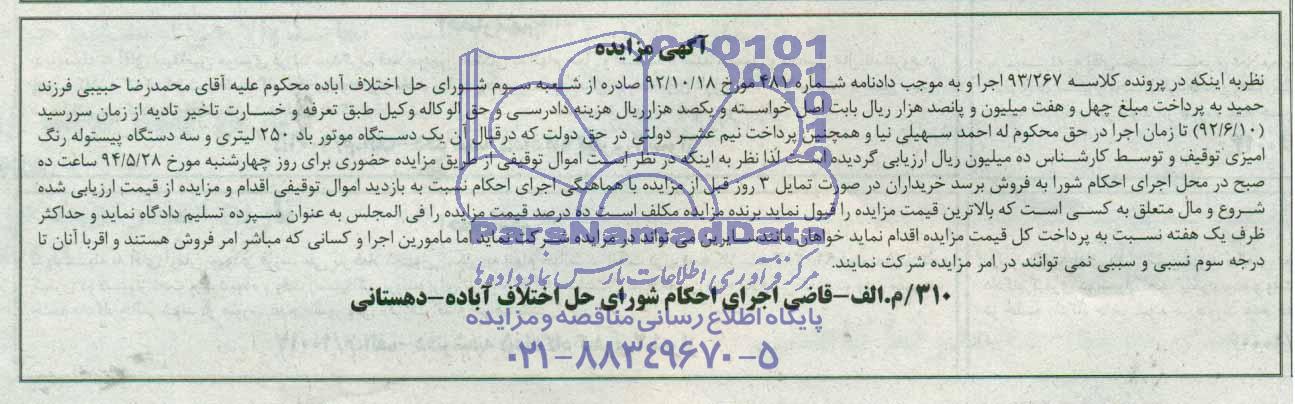 آگهی مزایده
نظربه اینکه در پرونده کلاسه ۹۳/۲۶۷ اجرا و به موجب دادنامه شماره ۴۸۱ مورخ ۹۲/۱۰/۱۸ صادره از شعبه سوم شورای حل اختلاف آباده محکوم علیه آقای محمدرضا حبیبی فرزند
حمید به پرداخت مبلغ چهل و هفت میلیون و پانصد هزار ریال بابت اصل خواسته و یکصد هزارریال هزینه دادرسی و حق الوکاله وکیل طبق تعرفه و خسارت تاخیر تادیه از زمان سررسید
(۹۲/۶/۱۰) تا زمان اجرا در حق محکوم له احمد سهیلی نیا و همچنین پرداخت نیم عشر دولتی در حق دولت که درقبال آن یک دستگاه موتور باد ۲۵۰ لیتری و سه دستگاه پیستوله رنگ
امیزی توقیف و توسط کارشناس ده میلیون ریال ارزیابی گردیده است لذا نظر به اینکه در نظر است اموال توقیفی از طریق مزایده حضوری برای روز چهارشنبه مورخ ۹۴/۵/۲۸ ساعت ده
صبح در محل اجرای احکام شورا به فروش برسد خریداران در صورت تمایل ۳ روز قبل از مزایده با هماهنگی اجرای احکام نسبت به بازدید اموال توقیفی اقدام و مزایده از قیمت ارزیابی شده
شروع و مال متعلق به کسی است که بالاترین قیمت مزایده را قبول نماید برنده مزایده مکلف است ده درصد قیمت مزایده را فی المجلس به عنوان سپرده تسلیم دادگاه نماید و حداکثر
ظرف یک هفته نسبت به پرداخت کل قیمت مزایده اقدام نماید خواهان مانند سایرین می تواند در مزایده شرکت نماید اما مامورین اجرا و کسانی که مباشر امر فروش هستند و اقربا آنان تا
درجه سوم نسبی و سببی نمی توانند در امر مزایده شرکت نمایند.
۳۱۰/م.الف-قاضی اجرای احکام شورای حل اختلاف آباده-دهستانی
ParsNamadData
مرکز فرآوری اطلاعات پارس نماد داده ها
پایگاه اطلاع رسانی مناقصه و مزایده
۰۲۱-۸۸۳۴۹۶۷۰-۵